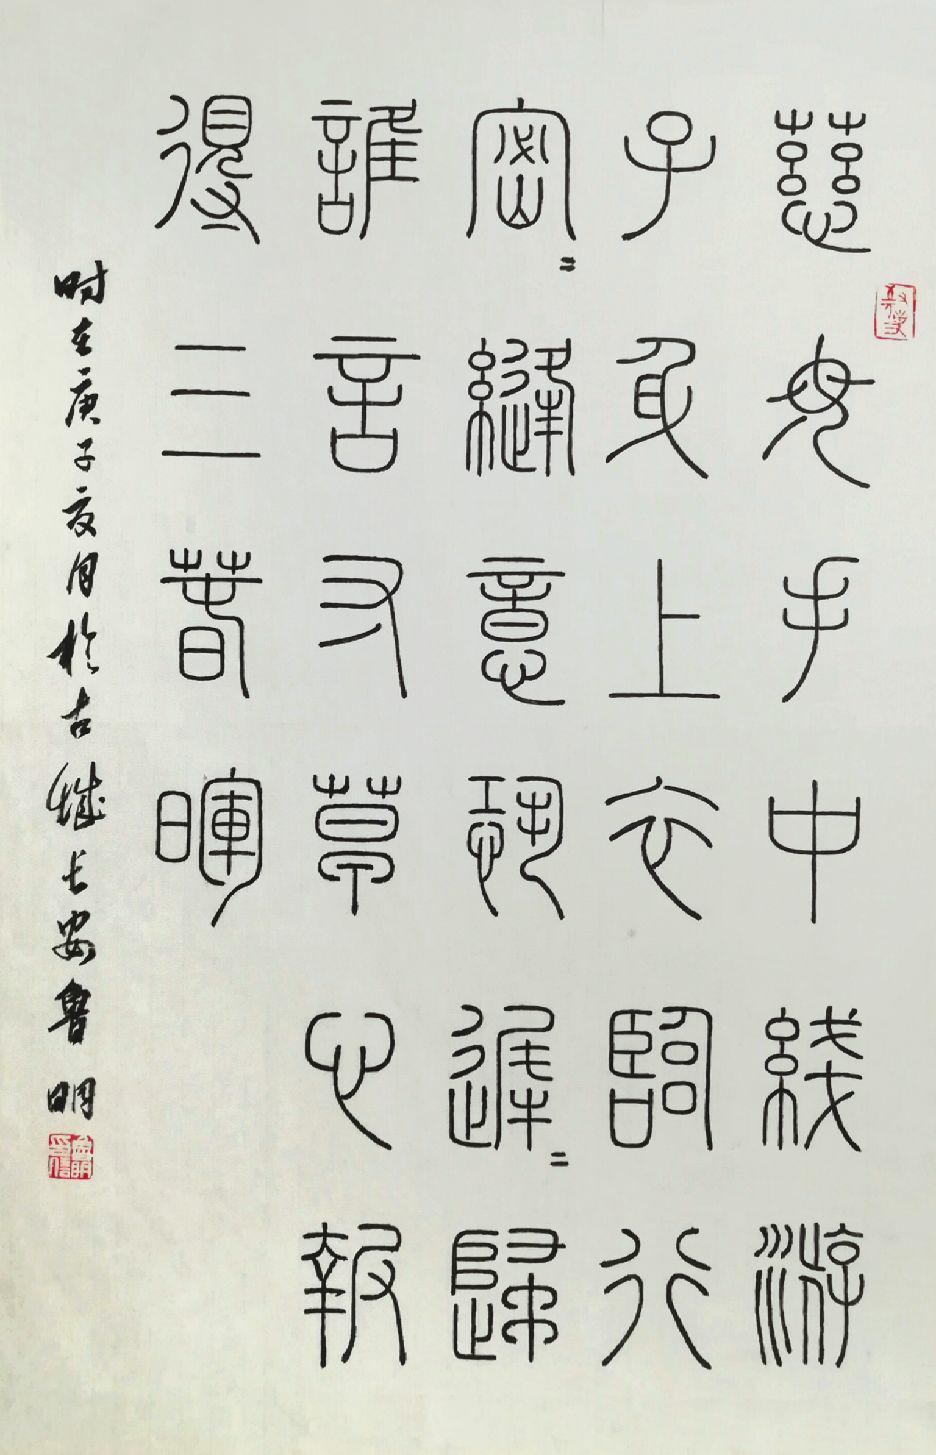 慈母手中綫游
子身上衣臨行
密〻縫意恐遲〻歸
誰言寸草心報
得三春暉
时在庚子夏月於古城长安鲁明